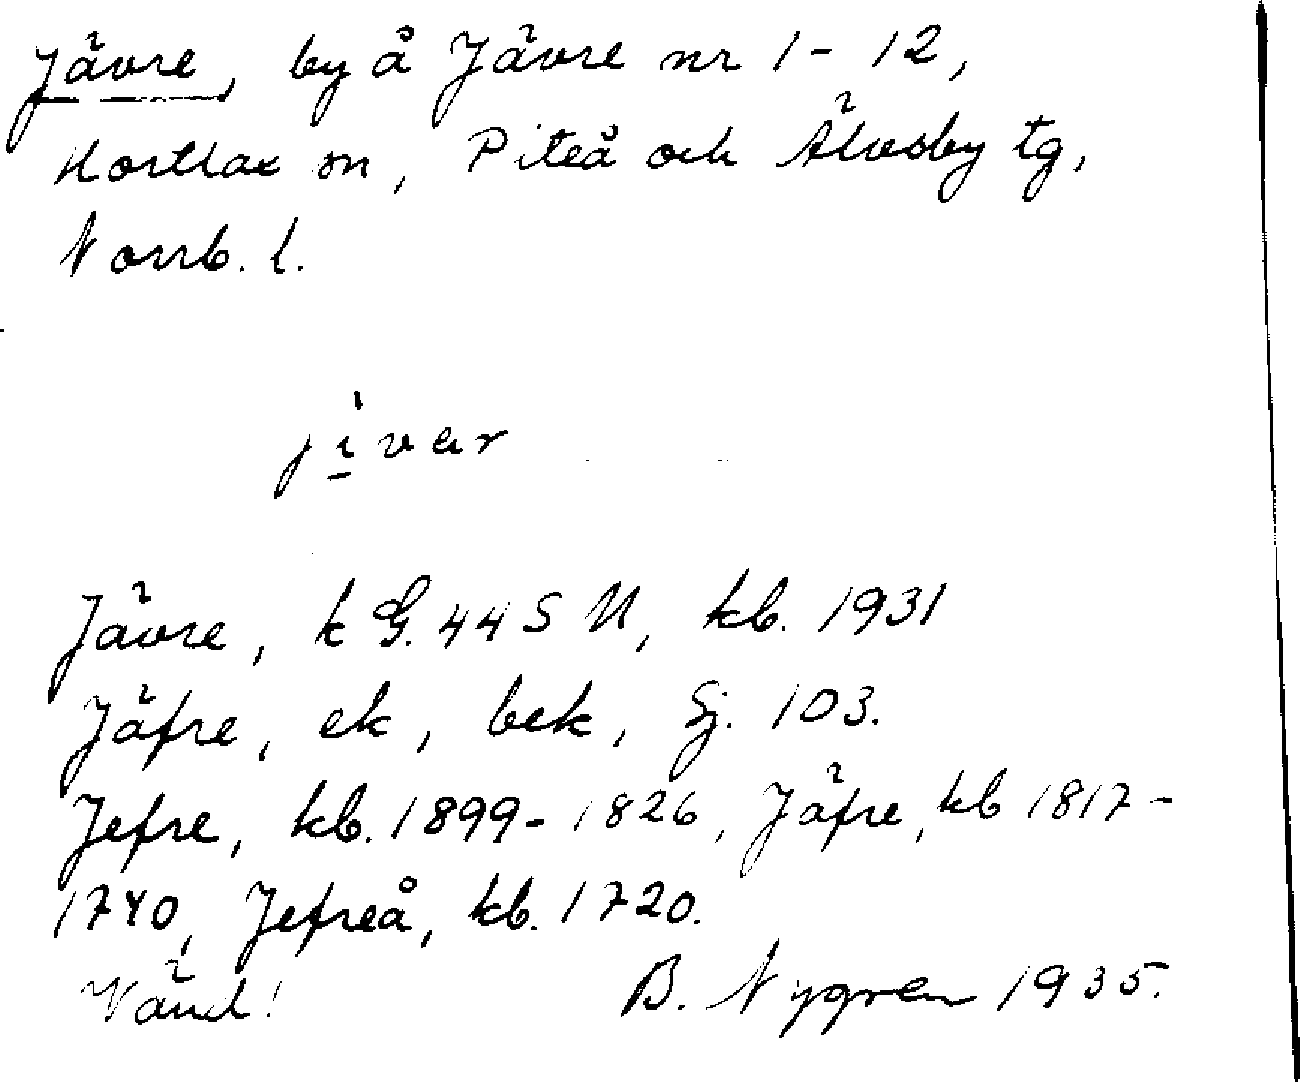 Jävre, by å Jävre nr 1-12,
Hortlax sn, Piteå och Älvsby tg,
Norrb. l.
Jävre, k G. 44 S U, kb. 1931
Jäfre, ek, bek, Sj. 103.
Jefre, kb. 1899-1826, Jäfre, kb 1817-
1740, Jefreå, kb. 1720.
Vänd! B. Nygren 1935.